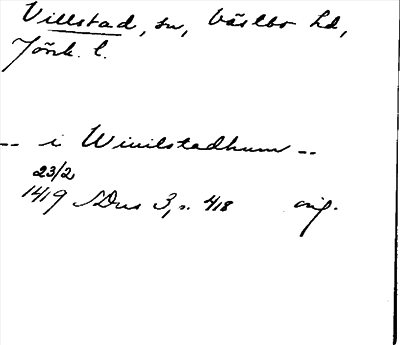 Villstad, sn, Västbo hd,
Jönk. l.
-- i Winilstadhum --
23/2
1419 SDns 3, s. 418 orig.